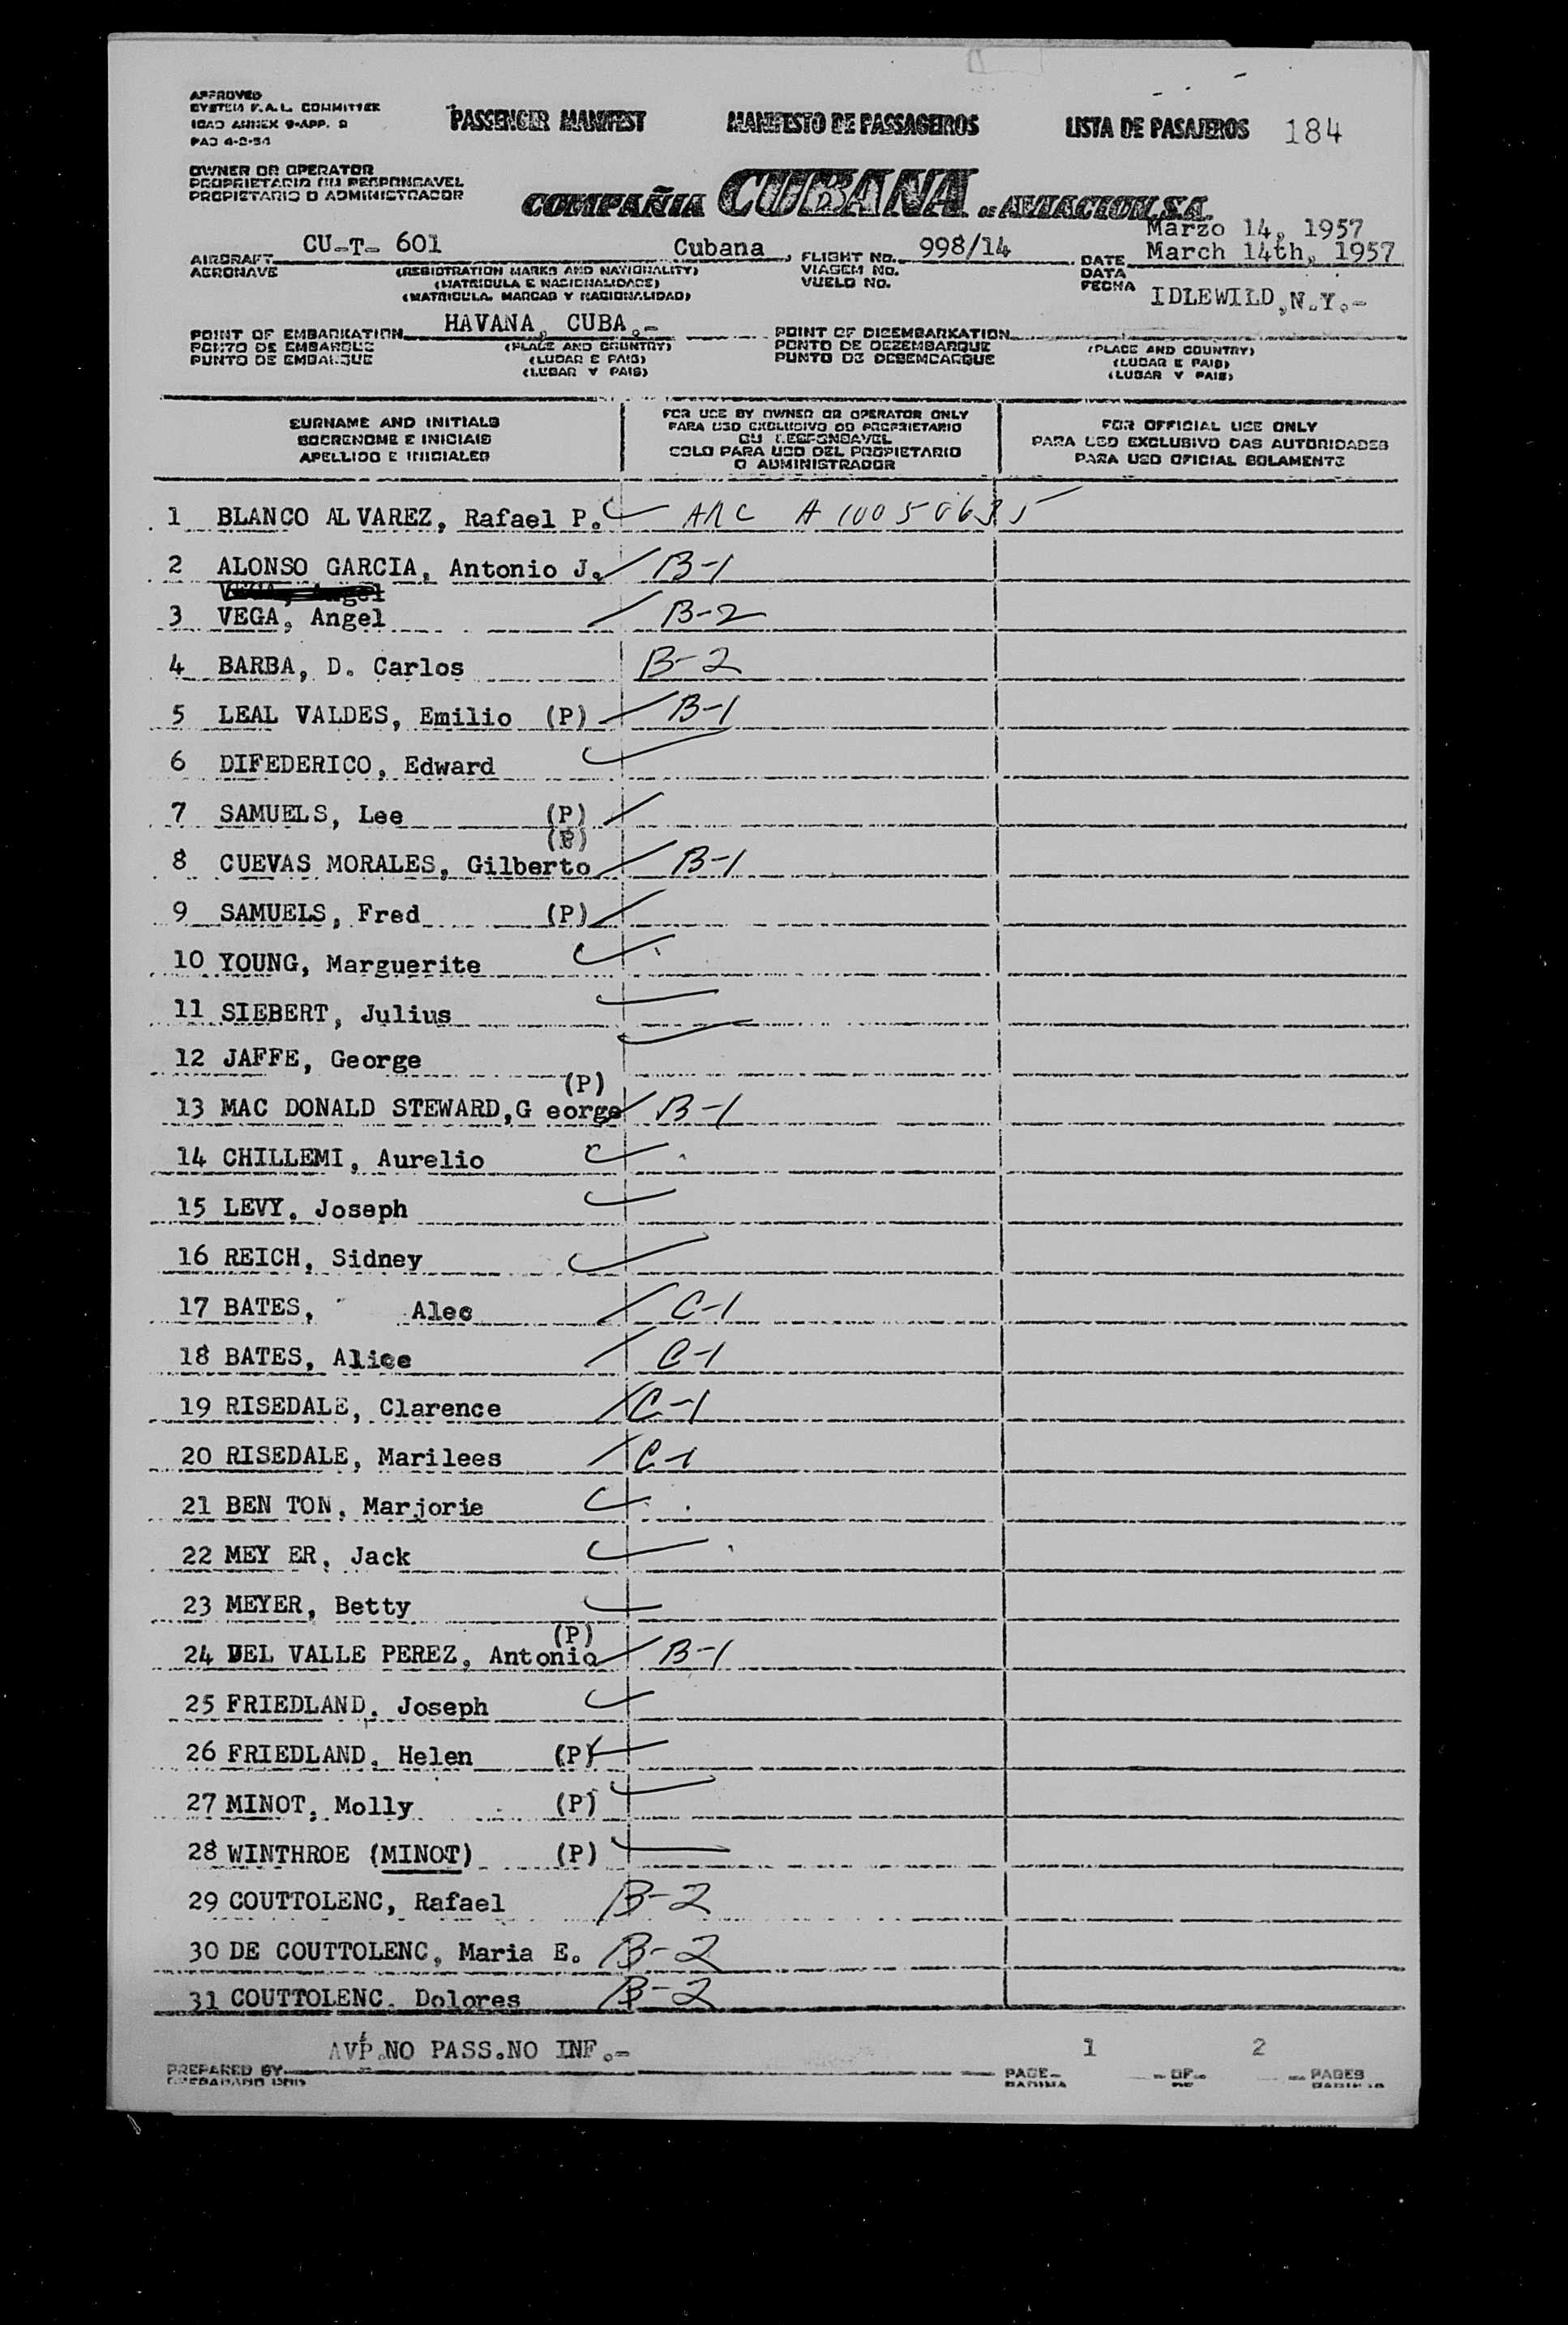 APPROVED
SYSTEM F.A.L. COMMITTEE
ICAO ANNEX 9-APP. 2
PAD 4-2-54
PASSENGER MANIFEST MANIFESTO DE PASSAGEIROS LISTA DE PASAJEROS 184
OWNER OR OPERATOR
PROPRIETARIO OU RESPONSAVEL
PROPIETARIO O ADMINISTRADOR
COMPAÑIA CUBANA DE AVIACION, S.A.
Marzo 14, 1957
AIRCRAFT CU-T- 601 Cubana, FLIGHT NO. 998/14 DATE March 14th, 1957
AERONAVE (REGISTRATION MARKS AND NATIONALITY) VIAGEM NO. DATA
(MATRICULA E NACIONALIDADE) VUELO NO. FECHA
(MATRICULA, MARCAS Y NACIONALIDAD) IDLEWILD,N.Y.-
POINT OF EMBARKATION HAVANA, CUBA.- POINT OF DISEMBARKATION
PONTO DE EMBARQUE (PLACE AND COUNTRY) PONTO DE DEZEMBARQUE (PLACE AND COUNTRY)
PUNTO DE EMBARQUE (LUGAR E PAIS) PUNTO DE DESEMBARQUE (LUGAR E PAIS)
(LUGAR Y PAIS) (LUGAR Y PAIS)
SURNAME AND INITIALS
SOBRENOME E INICIAIS
APELLIDO E INICIALES
FOR USE BY OWNER OR OPERATOR ONLY
PARA USO EXCLUSIVO DO PROPRIETARIO
OU RESPONSAVEL
SOLO PARA USO DEL PROPIETARIO
O ADMINISTRADOR
FOR OFFICIAL USE ONLY
PARA USO EXCLUSIVO DAS AUTORIDADES
PARA USO OFICIAL SOLAMENTE
1 BLANCO ALVAREZ, Rafael P. ARC
2 ALONSO GARCIA, Antonio J. B-1
VEGA, Angel
3 VEGA, Angel B-2
4 BARBA, D. Carlos B-2
5 LEAL VALDES, Emilio (P) B-1
6 DIFEDERICO, Edward
7 SAMUELS, Lee (P)
(P)
8 CUEVAS MORALES, Gilberto B-1
9 SAMUELS, Fred (P)
10 YOUNG, Marguerite
11 SIEBERT, Julius
12 JAFFE, George
(P)
13 MAC DONALD STEWARD,G eorge B-1
14 CHILLEMI, Aurelio
15 LEVY, Joseph
16 REICH, Sidney
17 BATES, Alec C-1
18 BATES, Alice C-1
19 RISEDALE, Clarence C-1
20 RISEDALE, Marilees C-1
21 BEN TON, Marjorie
22 MEY ER, Jack
23 MEYER, Betty
(P)
24 DEL VALLE PEREZ, Antonio B-1
25 FRIEDLAND, Joseph
26 FRIEDLAND, Helen (P)
27 MINOT, Molly (P)
28 WINTHROE (MINOT) (P)
29 COUTTOLENC, Rafael B-2
30 DE COUTTOLENC, Maria E. B-2
31 COUTTOLENC, Dolores B-2
AVP.NO PASS.NO INF.- 1 2
PREPARED BY PAGE OF PAGES